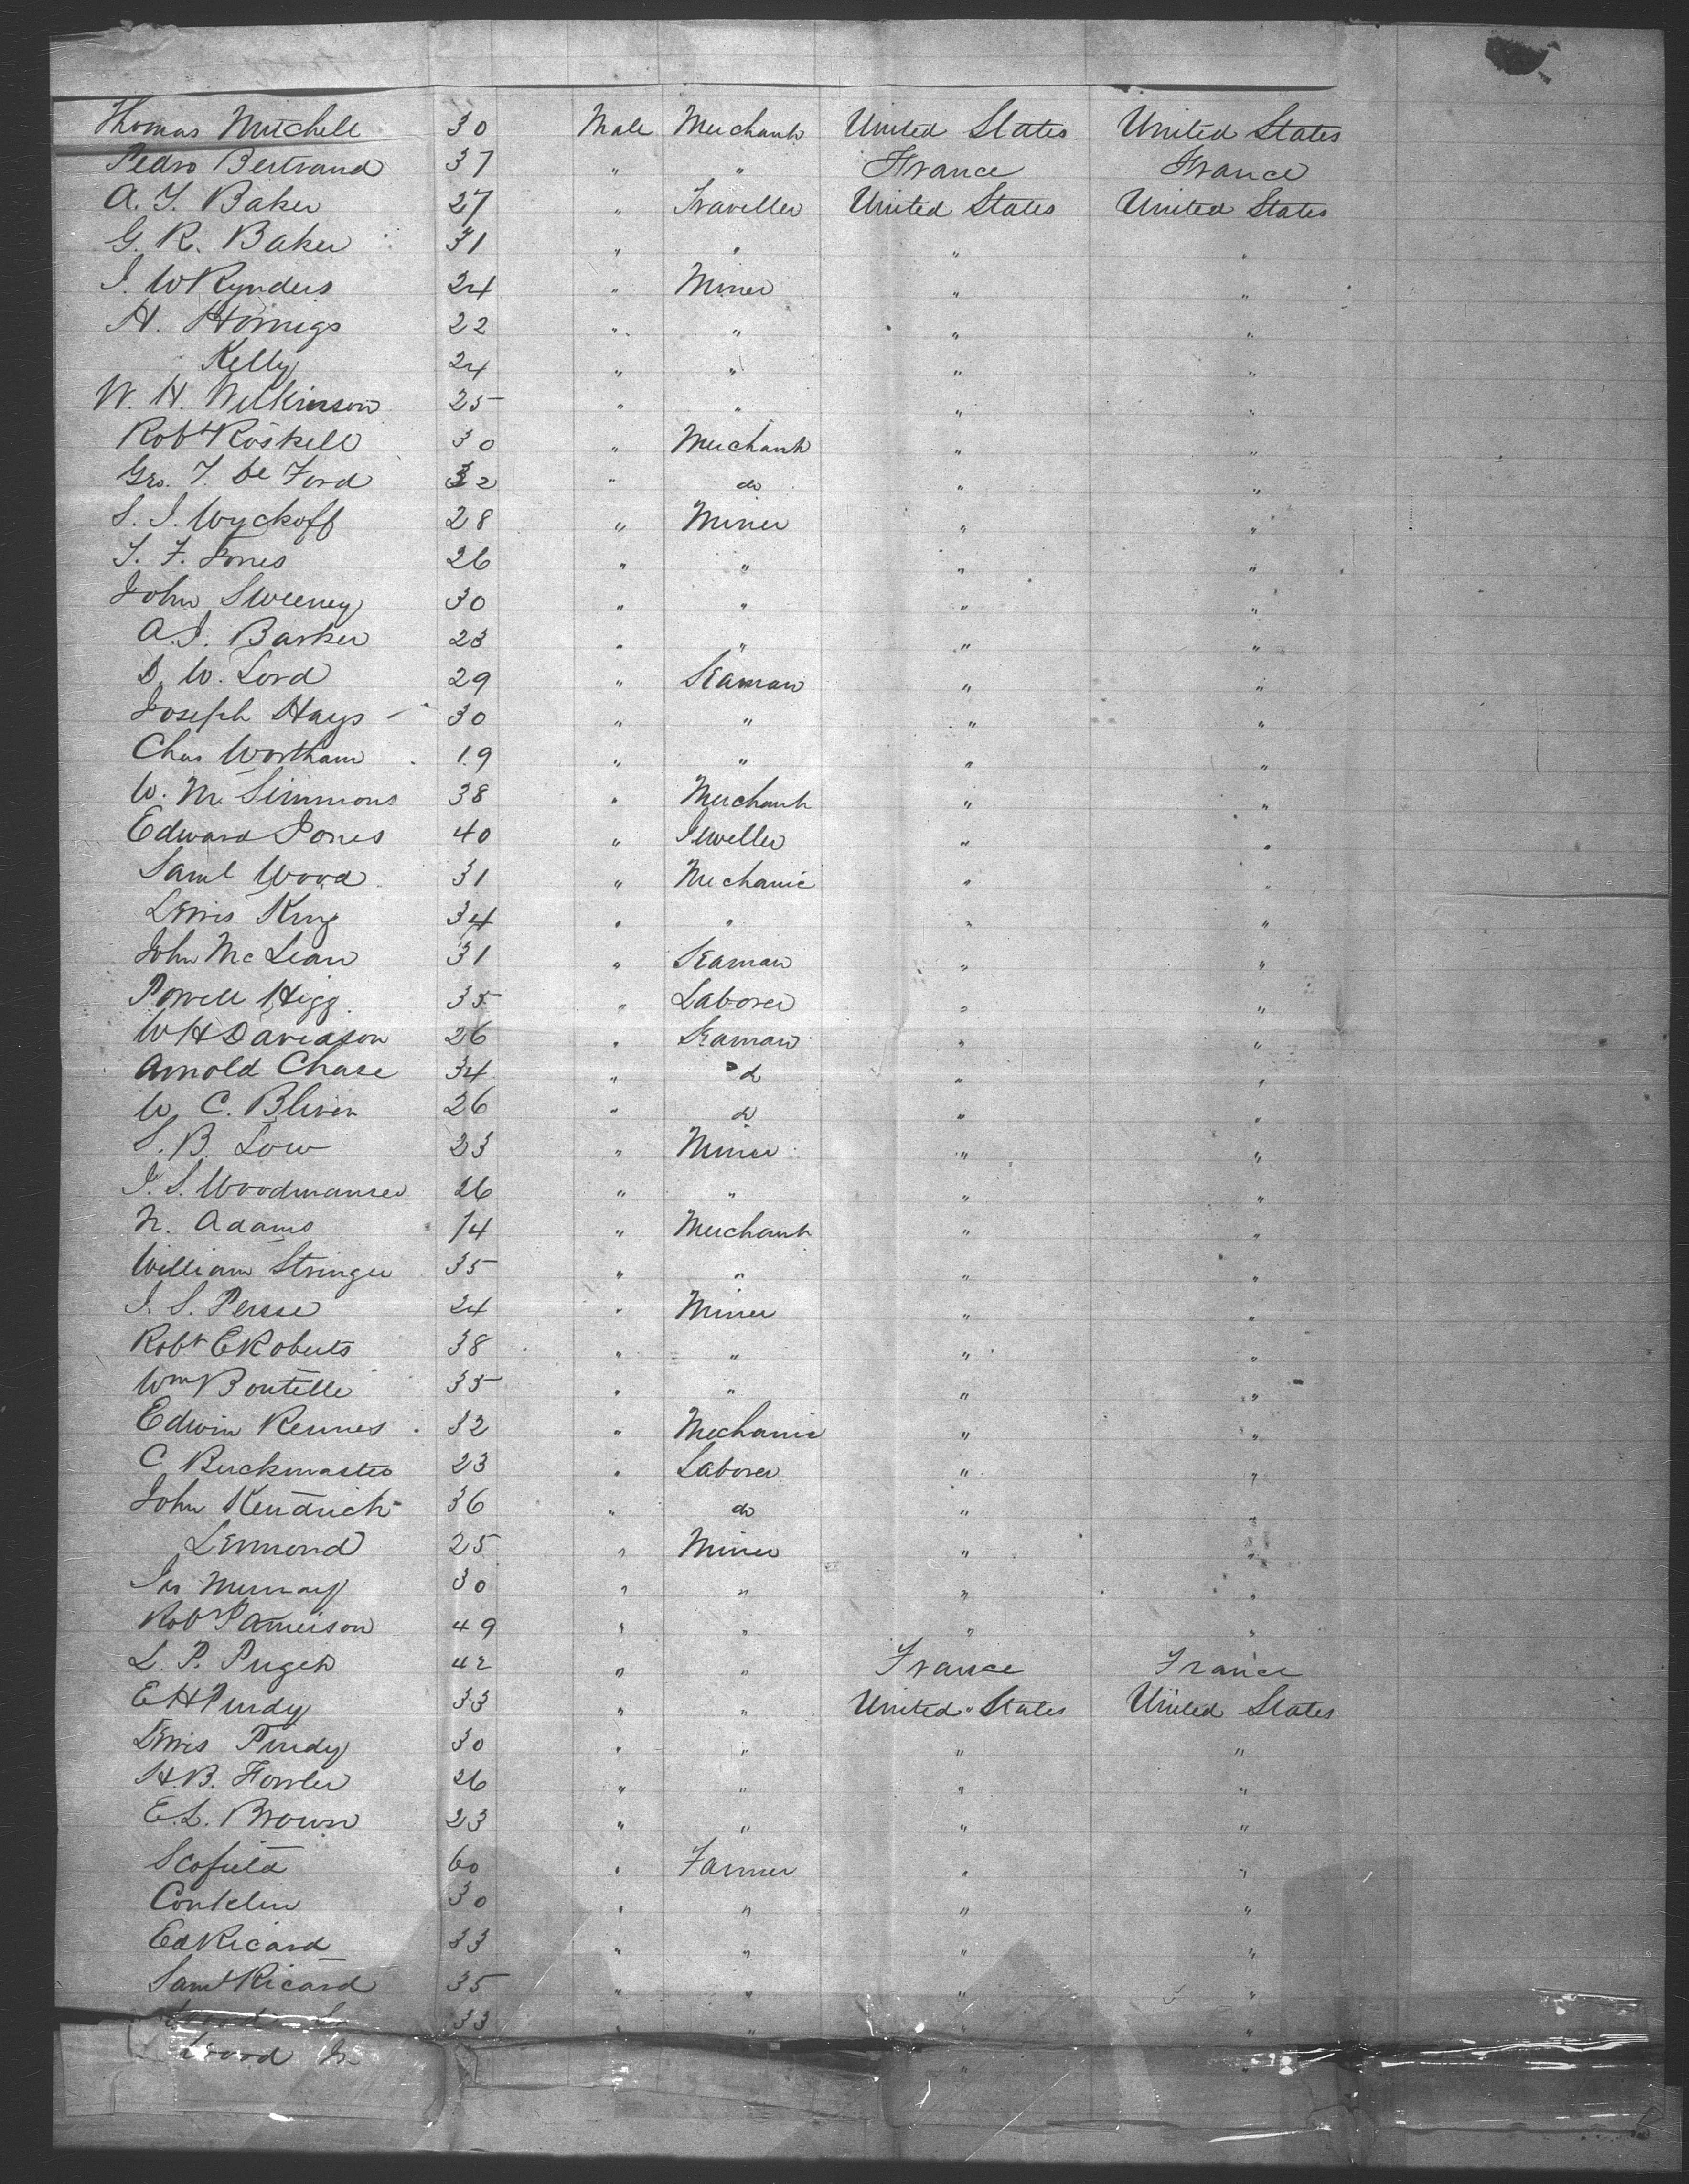 Thomas Mitchell 30 Male Merchant United States United States
Pedro Bertrand 37 " " France France
A. T. Baker 27 " Traveller United States United States
G. R. Baker 31 " " " "
J. W Rynders 24 " Miner " "
H. Hornigs 22 " " " "
Kelly 24 " " " "
W. H. Wilkinson 25 " " " "
Robt Roskell 30 " Merchant " "
Geo. T. De Ford 32 " do " "
S. J. Wyckoff 28 " Miner " "
T. F. Jones 26 " " " "
John Sweeney 30 " " " "
A. J. Barker 23 " " " "
D. W. Lord 29 " Seaman " "
Joseph Hays 30 " " " "
Chas Wortham 19 " " " "
W. M. Simmons 38 " Merchant " "
Edward Jones 40 " Jeweller " "
Saml Wood 31 " Mechanic " "
Lewis King 34 " " " "
John McLean 31 " Seaman " "
Powell Higg 35 " Laborer " "
W H Davidson 26 " Seaman " "
Arnold Chase 34 " do " "
W. C. Bliven 26 " do " "
S. B. Low 23 " Miner " "
J. S. Woodmansee 26 " " " "
N. Adams 14 " Merchant " "
William Stringer 35 " " " "
J. S. Pease 24 " Miner " "
Robt E Roberts 38 " " " "
Wm Boutelle 35 " " " "
Edwin Rennes 32 " Mechanic " "
C Buckmaster 23 " Laborer " "
John Kendrick 36 " do " "
Lemmond 25 " Miner " "
Jas Murray 30 " " " "
Robt Jameison 49 " " " "
L. P. Puget 42 " " France France
E H Purdy 33 " " United States United States
Lewis Purdy 30 " " " "
H. B. Fowler 26 " " " "
E. L. Brown 23 " " " "
Scofield 60 " Farmer " "
Conklin 30 " " " "
Ed Ricard 33 " " " "
Saml Ricard 35 " " " "
33 " " " "
Wood Jr " "